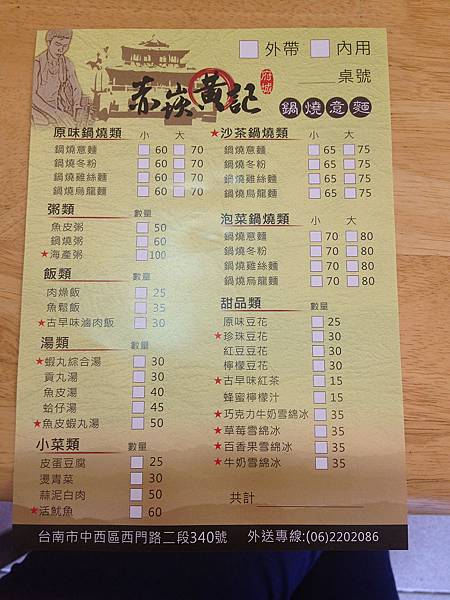 外帶 內用
桌號
府城
赤崁黃記
鍋燒意麵
原味鍋燒類 小 大
鍋燒意麵 60 70
鍋燒冬粉 60 70
鍋燒雞絲麵 60 70
鍋燒烏龍麵 60 70
粥類 數量
魚皮粥 50
鍋燒粥 60
★海產粥 100
飯類 數量
肉燥飯 25
魚鬆飯 35
★古早味滷肉飯 30
湯類 數量
★蝦丸綜合湯 30
貢丸湯 30
魚皮湯 40
蛤仔湯 45
★魚皮蝦丸湯 50
小菜類 數量
皮蛋豆腐 25
燙青菜 30
蒜泥白肉 50
★活魷魚 60
★沙茶鍋燒類 小 大
鍋燒意麵 65 75
鍋燒冬粉 65 75
鍋燒雞絲麵 65 75
鍋燒烏龍麵 65 75
泡菜鍋燒類 小 大
鍋燒意麵 70 80
鍋燒冬粉 70 80
鍋燒雞絲麵 70 80
鍋燒烏龍麵 70 80
甜品類 數量
原味豆花 25
★珍珠豆花 30
紅豆豆花 30
檸檬豆花 30
★古早味紅茶 15
蜂蜜檸檬汁 15
★巧克力牛奶雪綿冰 35
★草莓雪綿冰 35
★百香果雪綿冰 35
★牛奶雪綿冰 35
共計
台南市中西區西門路二段340號 外送專線:(06)2202086